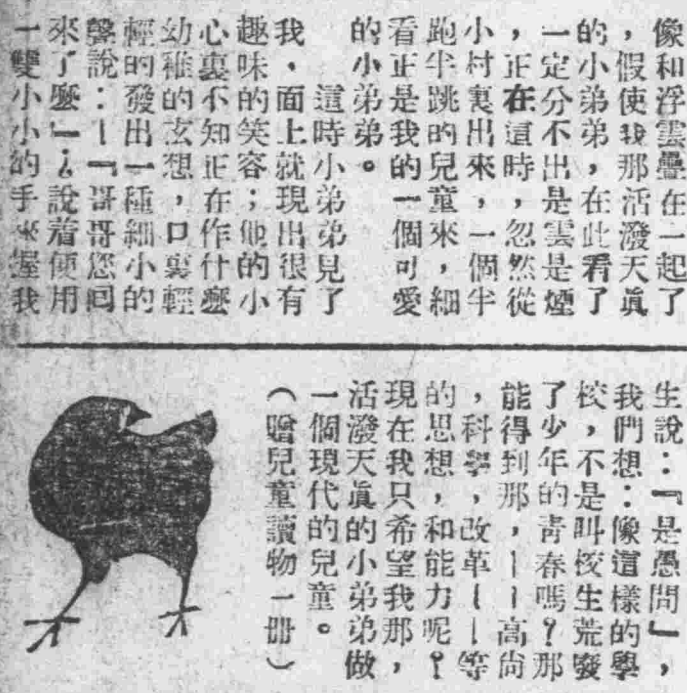 像和浮雲疊在一起了
，假使我那活潑天眞
的小弟弟，在此看了
一定分不出是雲是煙
，正在這時，忽然從
小村裏出來，一個半
跑半跳的兒童來，細
看正是我的一個可愛
的小弟弟。
這時小弟弟見了
我，面上就現出很有
趣味的笑容；他的小
心裏不知正在作什麼
幼稚的玄想，口裏輕
輕的發出一種細小的
聲說：—『哥哥您囘
來了麼』；說着便用
一雙小小的手來握我
生說：『是愚問』，
我們想：像這樣的學
校，不是叫校生荒廢
了少年的靑春嗎？那
能得到那，——高尚
，科學，改革——等
的思想，和能力呢？
現在我只希望我那，
活潑天眞的小弟弟做
一個現代的兒童。
（贈兒童讀物一册）